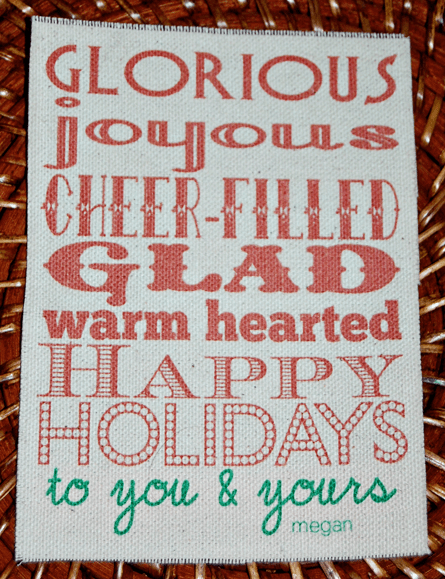 GLORIOUS
joyous
CHEER-FILLED
GLAD
warm hearted
HAPPY
HOLIDAYS
to you & yours
megan